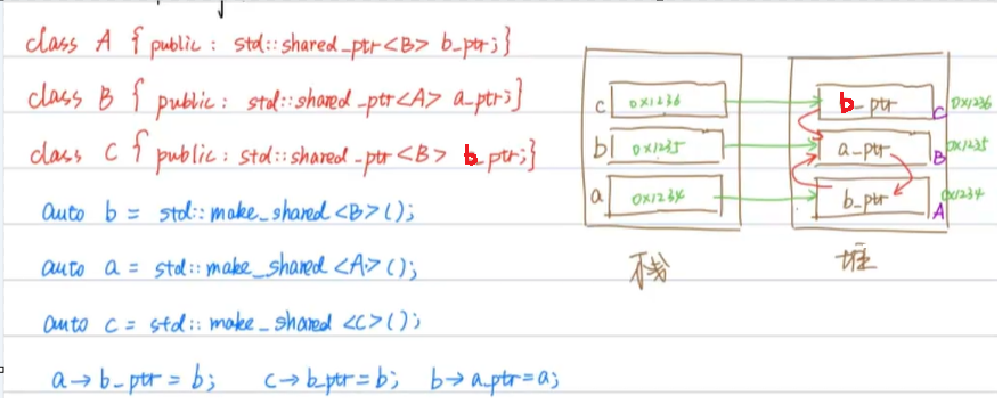 class A { public : std::shared_ptr<B> b_ptr;}
class B { public : std::shared_ptr<A> a_ptr;}
class C { public : std::shared_ptr<B> b_ptr;}
auto b = std::make_shared<B>();
auto a = std::make_shared<A>();
auto c = std::make_shared<C>();
a→b_ptr = b; c→b_ptr=b; b→a_ptr=a;
c 0x1236 b_ptr C 0x1236
b 0x1235 a_ptr B 0x1235
a 0x1234 b_ptr A 0x1234
栈 堆